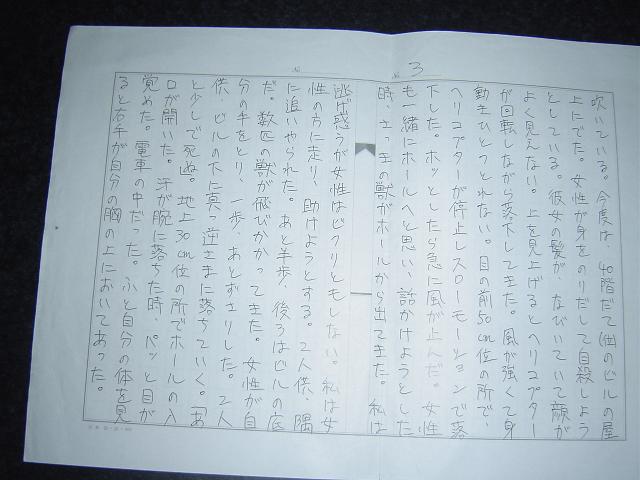 3
吹いている。今度は、40階だて位のビルの屋
上にでた。女性が身をのりだして自殺しよう
としている。彼女の髪が、なびいていて顔が
よく見えない。上を見上げるとヘリコプター
が回転しながら落下してきた。風が強くて身
動きひとつとれない。目の前50cm位の所で、
ヘリコプターが停止しスローモーションで落
下した。ホッとしたら急に風が止んだ。女性
も一緒にホールへと思い、話かけようとした
時、さっきの獣がホールから出てきた。私は
逃げ惑うが女性はビクリともしない。私は女
性の方に走り、助けようとする。2人供、隅
に追いやられた。あと半歩、後ろはビルの底
だ。数匹の獣が飛びかかってきた。女性が自
分の手をとり、一歩、あとずさりした。2人
供、ビルの下に真っ逆さまに落ちていく。「あ
と少しで死ぬ。地上30cm位の所でホールの入
口が開いた。汗が腕に落ちた時、パッと目が
覚めた。電車の中だった。ふと自分の体を見
ると右手が自分の胸の上においてあった。